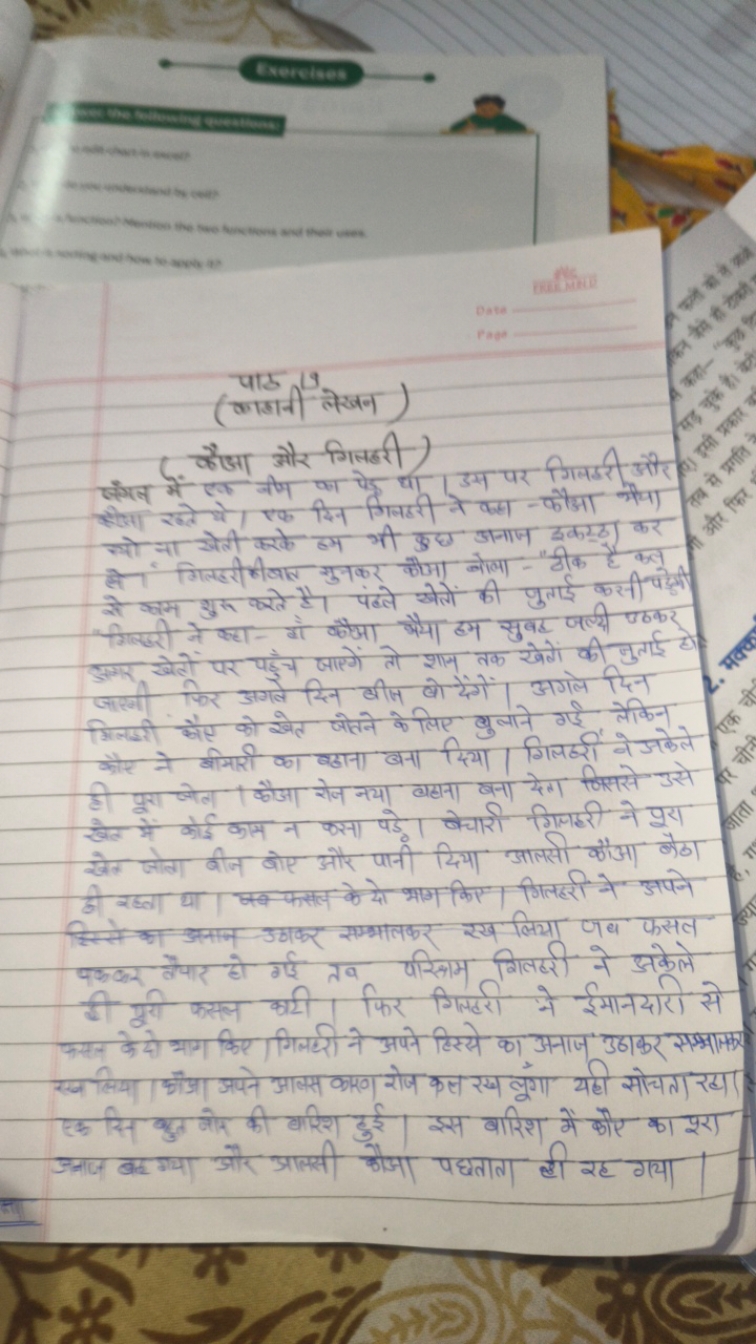 Exercises
the following questions:
edit chart in excel?
you understand by cell?
function? Mention the two functions and their uses.
sorting and how to apply it?
Date
Page
पाठ 19
(कहानी लेखन)
(कौआ और गिलहरी)
जंगल में एक नीम का पेड़ था। उस पर गिलहरी और
कौआ रहते थे। एक दिन गिलहरी ने कहा - कौआ भैया
क्यों ना खेती करके हम भी कुछ अनाज इकट्ठा कर
ले। गिलहरी की बात सुनकर कौआ बोला - "ठीक है कल
से काम शुरू करते है। पहले खेतों की जुताई करनी पड़ेगी
"गिलहरी ने कहा - हाँ कौआ भैया हम सुबह जल्दी उठकर
अगर खेतों पर पहुँच जाएगें तो शाम तक खेतों की जुताई हो
जाएगी फिर अगले दिन बीज बो देंगें। अगले दिन
गिलहरी कौए को खेत जोतने के लिए बुलाने गई लेकिन
कौए ने बीमारी का बहाना बना दिया। गिलहरी ने अकेले
ही पूरा जोता। कौआ रोज नया बहाना बना देता जिससे उसे
खेत में कोई काम न करना पड़े। बेचारी गिलहरी ने पूरा
खेत जोता बीज बोए और पानी दिया आलसी कौआ बैठा
ही रहता था। जब फसल के दो भाग किए। गिलहरी ने अपने
हिस्से का अनाज उठाकर सम्भालकर रख लिया जब फसल
पककर तैयार हो गई तब गिलहरी ने अकेले
ही पूरी फसल काटी। फिर गिलहरी ने ईमानदारी से
फसल के दो भाग किए। गिलहरी ने अपने हिस्से का अनाज उठाकर सम्भालकर
रख लिया। कौआ अपने आलस कारण रोज कल रख लूँगा यही सोचता रहा।
एक दिन बहुत जोर की बारिश हुई। इस बारिश में कौए का पूरा
अनाज बह गया और आलसी कौआ पछताता ही रह गया।
2. मक्का